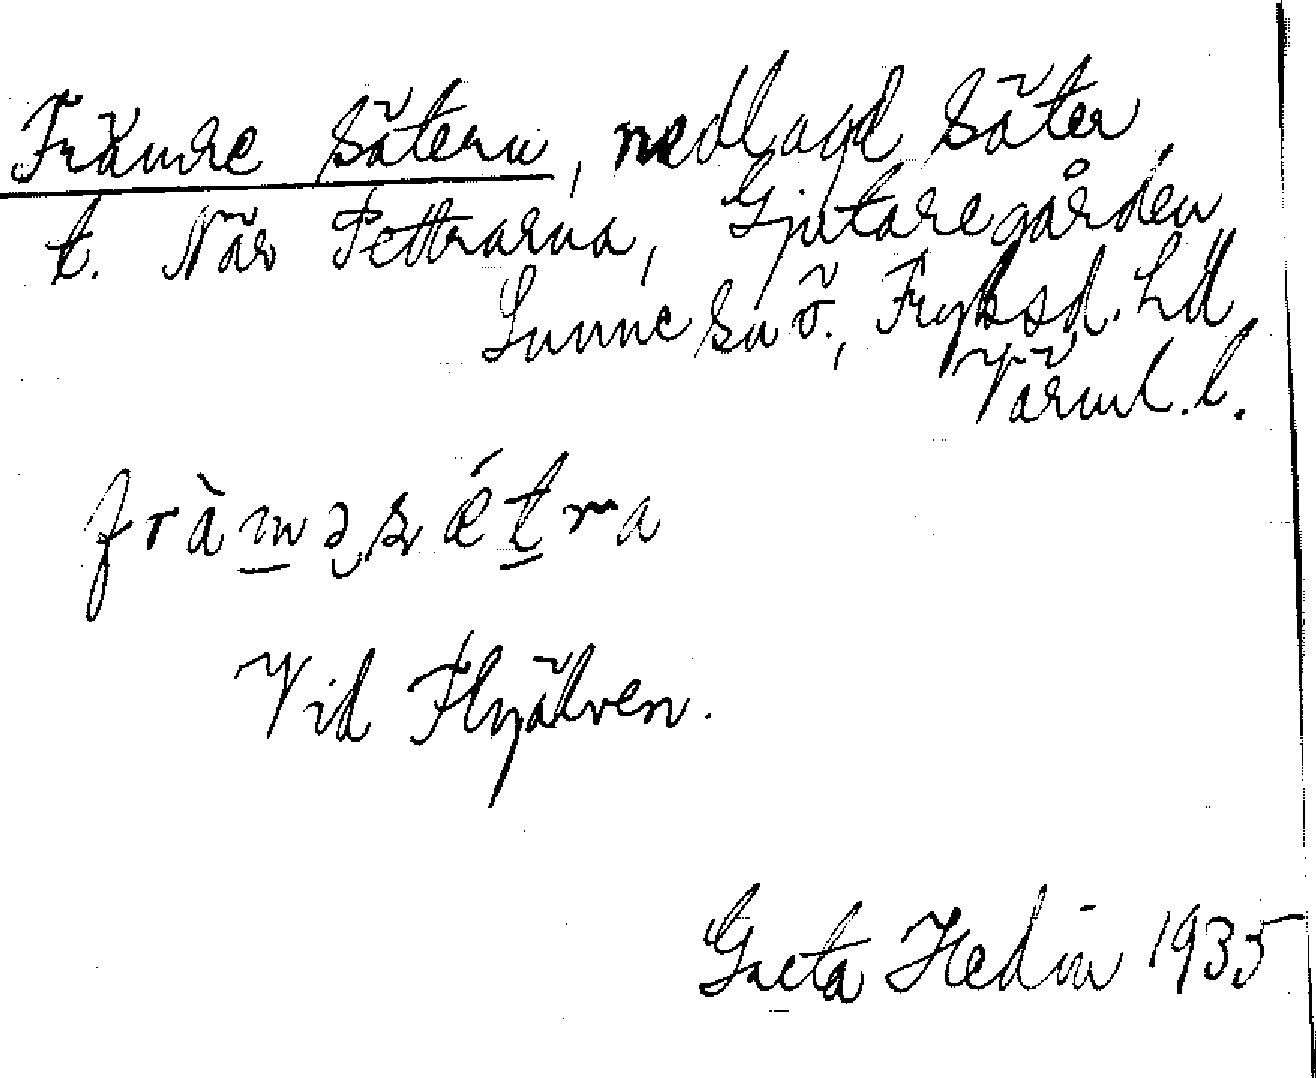 Främre Sätern, nedlagd säter,
t. När Pettrarna, Gjutaregården
Sunne sn ö., Fryksd. hd
Värml. l.
fràməsǽtra
Vid Flyälven.
Greta Hedin 1935